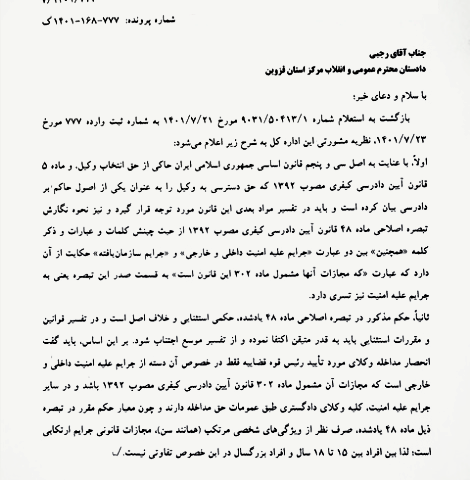 شماره پرونده: ۷۷۷-۱۶۸-۱۴۰۱ک
جناب آقای رجبی
دادستان محترم عمومی و انقلاب مرکز استان قزوین
با سلام و دعای خیر؛
بازگشت به استعلام شماره ۹۰۳۱/۵۰۴۱۳/۱ مورخ ۱۴۰۱/۷/۲۱ به شماره ثبت وارده ۷۷۷ مورخ
۱۴۰۱/۷/۲۳، نظریه مشورتی این اداره کل به شرح زیر اعلام می‌شود:
اولاً، با عنایت به اصل سی و پنجم قانون اساسی جمهوری اسلامی ایران حاکی از حق انتخاب وکیل، و ماده ۵
قانون آیین دادرسی کیفری مصوب ۱۳۹۲ که حق دسترسی به وکیل را به عنوان یکی از اصول حاکم بر
دادرسی بیان کرده است و باید در تفسیر مواد بعدی این قانون مورد توجه قرار گیرد و نیز نحوه نگارش
تبصره اصلاحی ماده ۴۸ قانون آیین دادرسی کیفری مصوب ۱۳۹۲ از حیث چینش کلمات و عبارات و ذکر
کلمه «همچنین» بین دو عبارت «جرایم علیه امنیت داخلی و خارجی» و «جرایم سازمان‌یافته» حکایت از آن
دارد که عبارت «که مجازات آنها مشمول ماده ۳۰۲ این قانون است» به قسمت صدر این تبصره یعنی به
جرایم علیه امنیت نیز تسری دارد.
ثانیاً، حکم مذکور در تبصره اصلاحی ماده ۴۸ یادشده، حکمی استثنایی و خلاف اصل است و در تفسیر قوانین
و مقررات استثنایی باید به قدر متیقن اکتفا نموده و از تفسیر موسع اجتناب شود. بر این اساس، باید گفت
انحصار مداخله وکلای مورد تأیید رئیس قوه قضاییه فقط در خصوص آن دسته از جرایم علیه امنیت داخلی و
خارجی است که مجازات آن مشمول ماده ۳۰۲ قانون آیین دادرسی کیفری مصوب ۱۳۹۲ باشد و در سایر
جرایم علیه امنیت، کلیه وکلای دادگستری طبق عمومات حق مداخله دارند و چون معیار حکم مقرر در تبصره
ذیل ماده ۴۸ یادشده، صرف نظر از ویژگی‌های شخصی مرتکب (همانند سن)، مجازات قانونی جرایم ارتکابی
است؛ لذا بین افراد بین ۱۵ تا ۱۸ سال و افراد بزرگسال در این خصوص تفاوتی نیست.